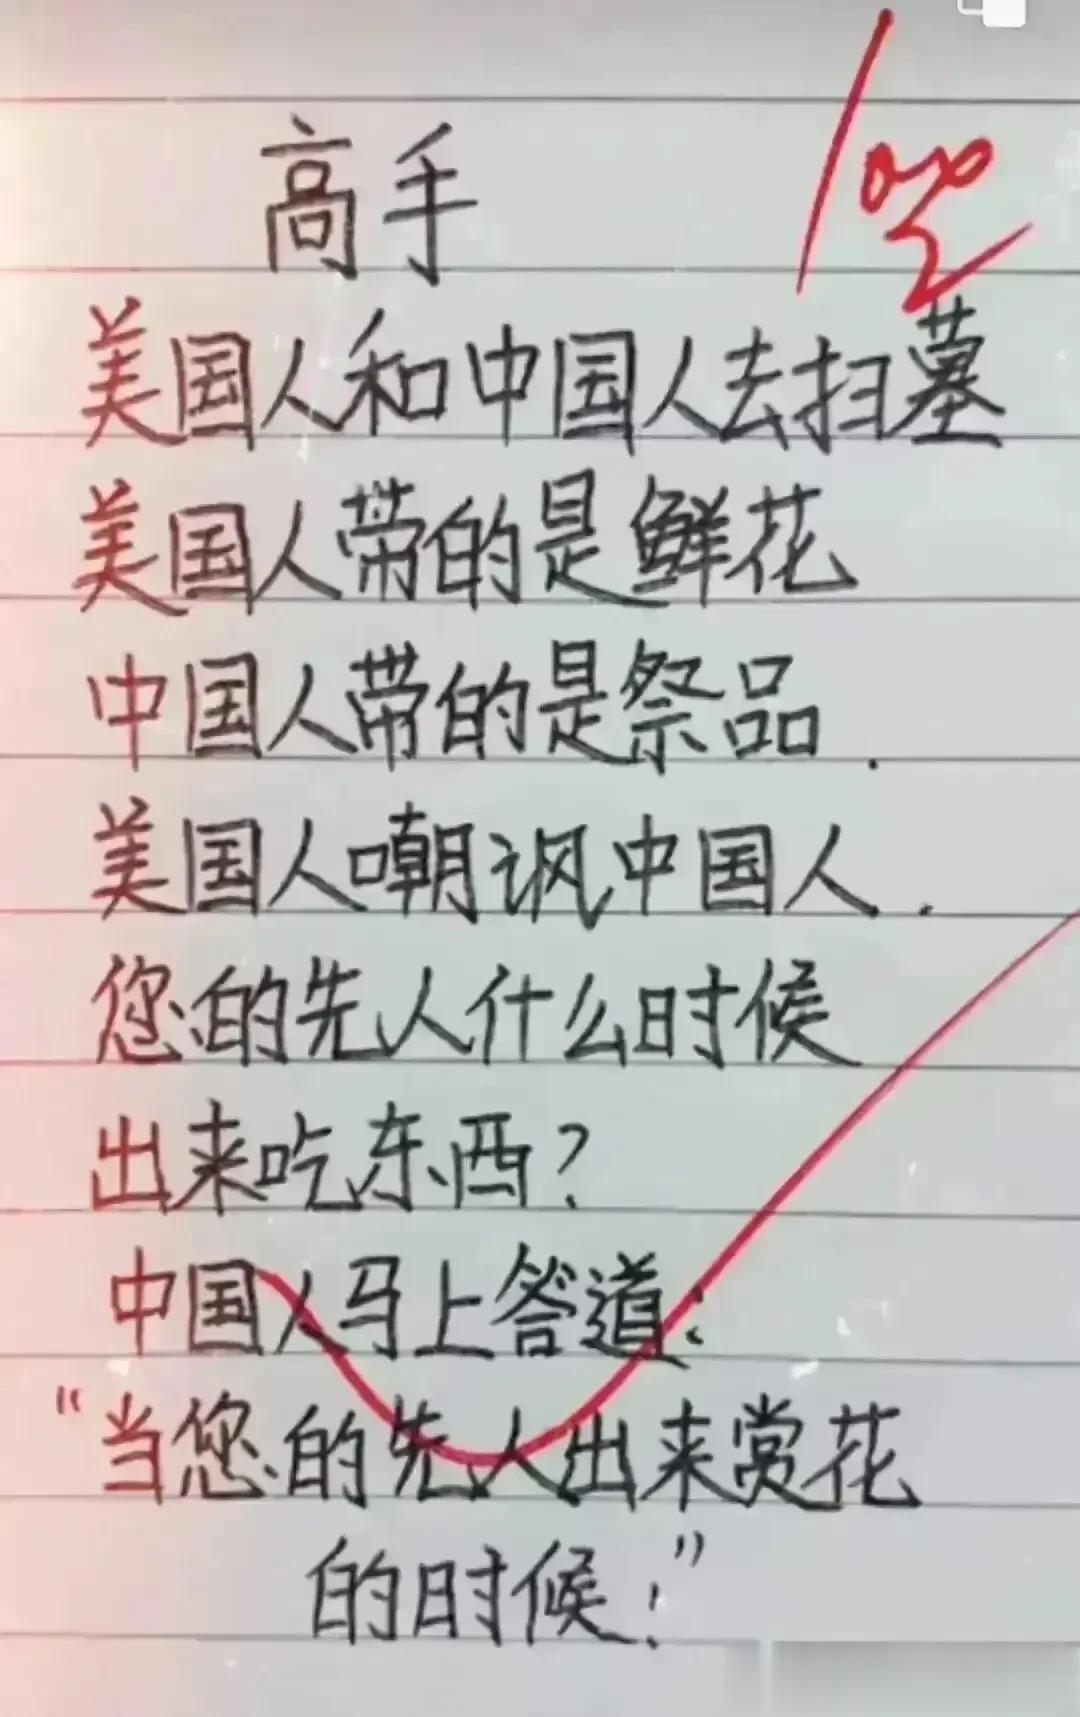 高手
100
美国人和中国人去扫墓
美国人带的是鲜花
中国人带的是祭品.
美国人嘲讽中国人.
您的先人什么时候
出来吃东西?
中国人马上答道:
“当您的先人出来赏花
的时候!”